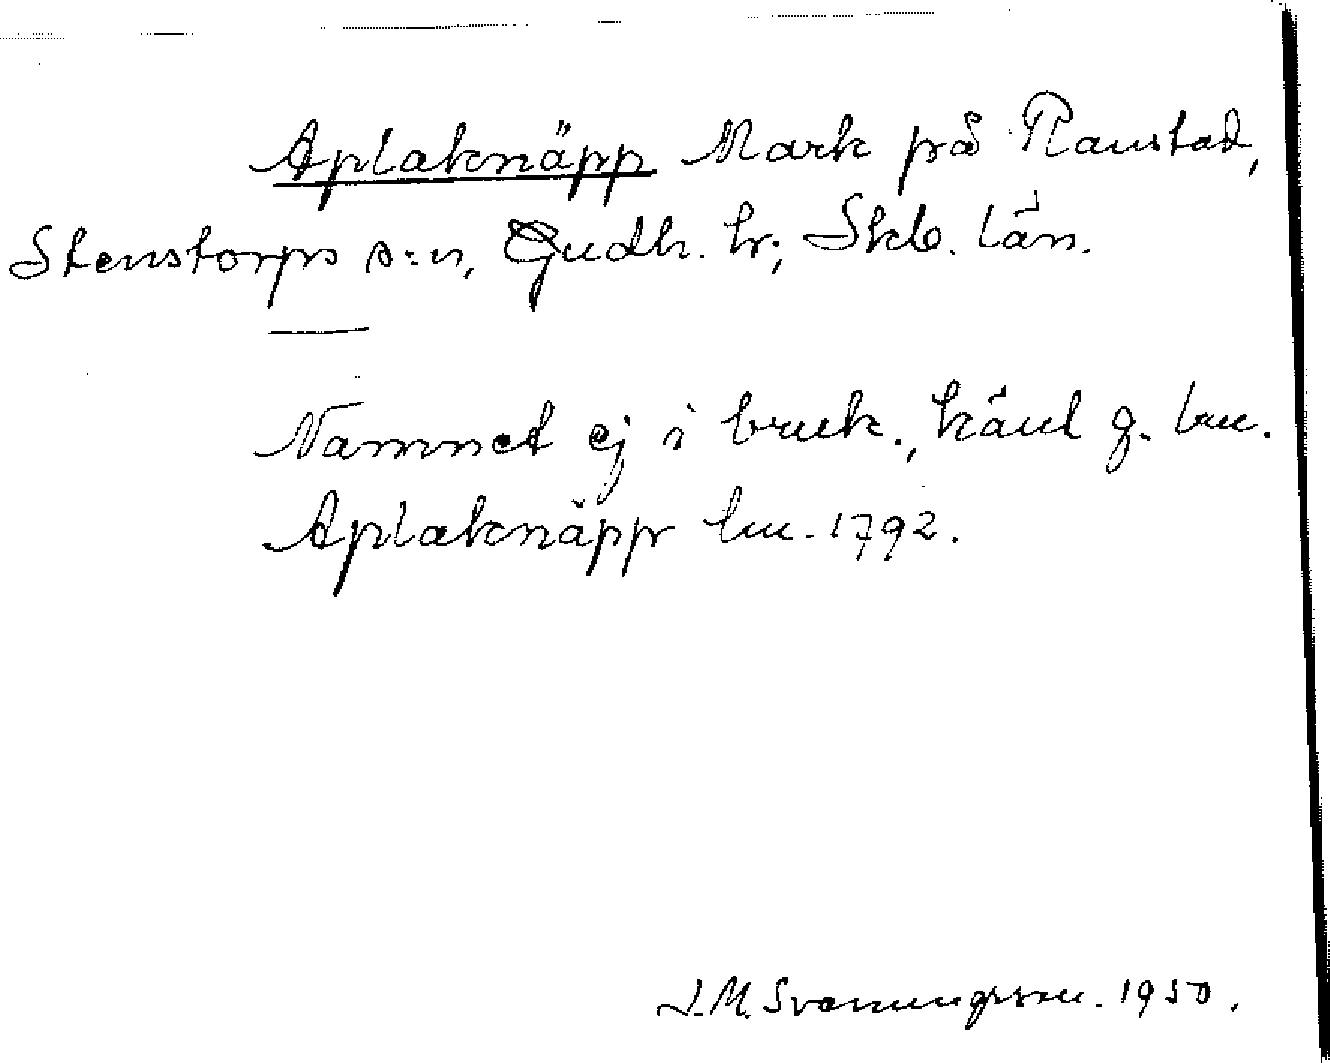 Aplaknäpp Mark på Ranstad,
Stenstorps s:n, Gudh. hr; Skb. län.
Namnet ej i bruk., känt g. lm.
Aplaknäpp lm. 1792.
J.M. Svenungsson. 1950.